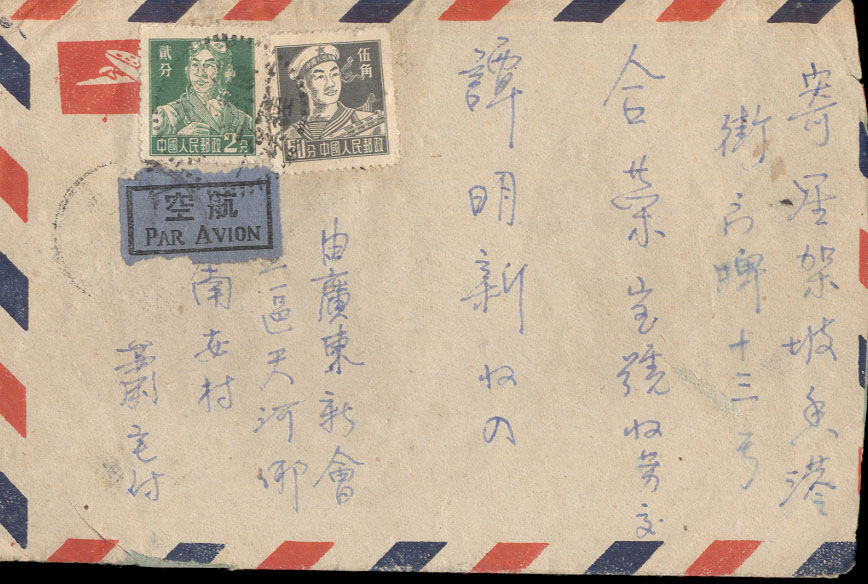 寄星架坡香港
街門牌十三号
合荣宝號收劳交
譚明新收入
由廣東新會
三區天河鄉
南安村
宅付
貳分
中國人民郵政 2分
伍角
50分 中國人民郵政
航空
PAR AVION